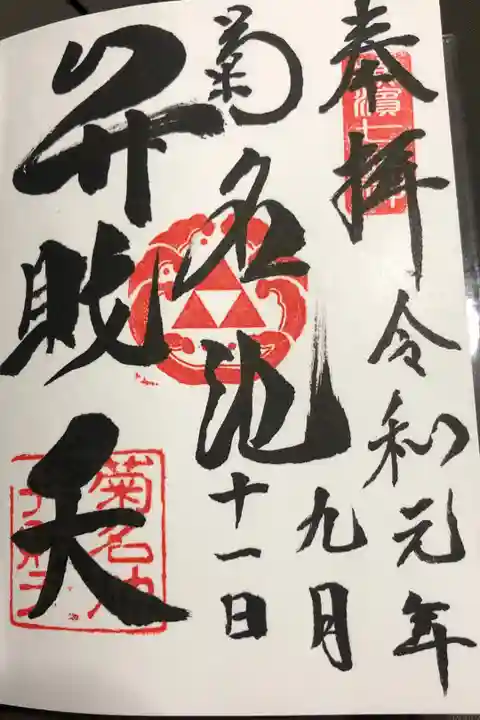 奉拝
令和元年
九月
十一日
菊名池
弁財天
菊名池